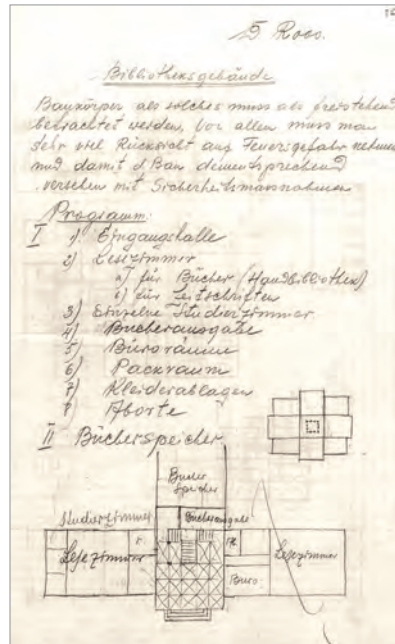 D Roos.
Bibliotheksgebäude
Baukörper als solches muss als freistehend
betrachtet werden, vor allen muss man
sehr viel Rücksicht auf Feuersgefahr nehmen
und damit d Bau dementsprechend
versehen mit Sicherheitsmassnahmen
Programm:
I 1) Eingangshalle
2) Lesezimmer
a) für Bücher (Handbibliothek)
b) für Zeitschriften
3) Einzelne Studierzimmer
4) Bücherausgabe
5) Büroräume
6) Packraum
7) Kleiderablagen
8 Aborte
II Bücherspeicher
Bücher
Speicher
Studierzimmer
Bücherausgabe
Lesezimmer
Lesezimmer
Büro